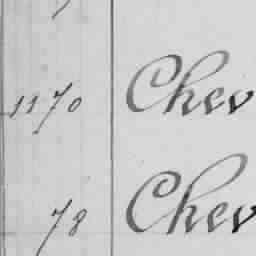 1170 Chev
78 Chev